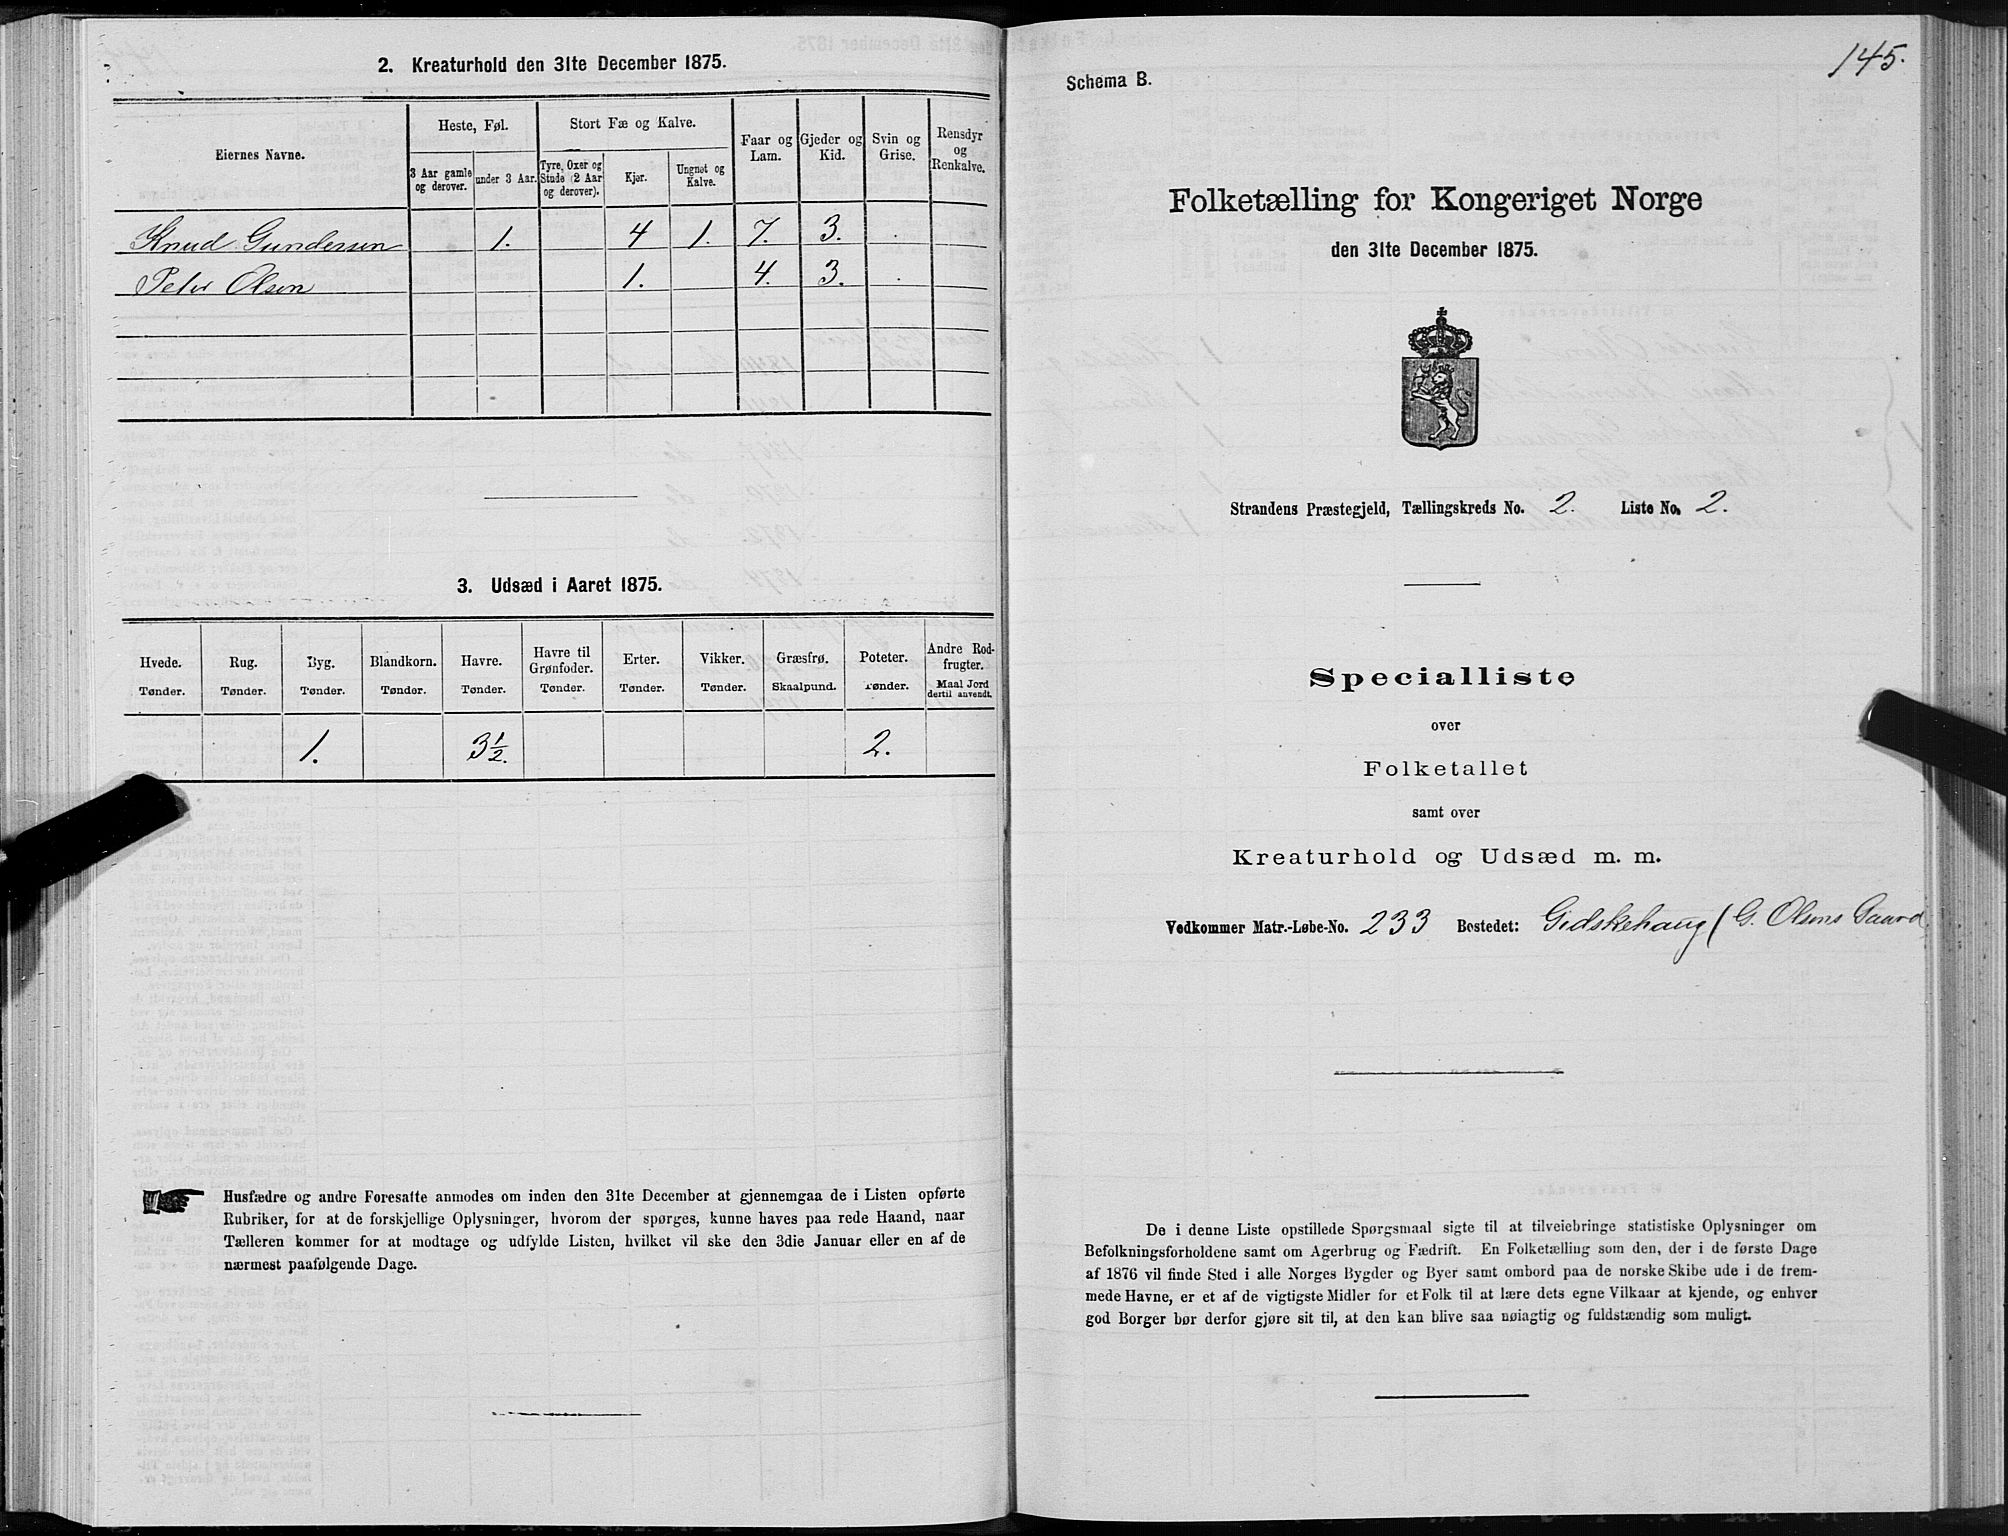 2. Kreaturhold den 31te December 1875.
Eiernes Navne.
Heste, Føl.
Stort Fæ og Kalve.
Faar og Lam.
Gjeder og Kid.
Svin og Grise.
Rensdyr og Renkalve.
3 Aar gamle og derover.
under 3 Aar.
Tyre, Oxer og Stude (2 Aar og derover).
Kjør.
Ungnøt og Kalve.
Knud Gundersen 1. 4 1. 7. 3. .
Peter Olsen 1. 4. 3. .
3. Udsæd i Aaret 1875.
Hvede. Rug. Byg. Blandkorn. Havre. Havre til Grønfoder. Erter. Vikker. Græsfrø. Poteter. Andre Rodfrugter.
Tønder. Tønder. Tønder. Tønder. Tønder. Tønder. Tønder. Tønder. Skaalpund. Tønder. Maal Jord dertil anvendt.
1. 3½. 2.
Husfædre og andre Foresatte anmodes om inden den 31te December at gjennemgaa de i Listen opførte
Rubriker, for at de forskjellige Oplysninger, hvorom der spørges, kunne haves paa rede Haand, naar
Tælleren kommer for at modtage og udfylde Listen, hvilket vil ske den 3die Januar eller en af de
nærmest paafølgende Dage.
145.
Schema B.
Folketælling for Kongeriget Norge
den 31te December 1875.
Strandens Præstegjeld, Tællingskreds No. 2. Liste No. 2.
Specialliste
over
Folketallet
samt over
Kreaturhold og Udsæd m. m.
Vedkommer Matr.-Løbe-No. 233 Bostedet: Gidskehaug (G. Olsens Gaard
De i denne Liste opstillede Spørgsmaal sigte til at tilveiebringe statistiske Oplysninger om
Befolkningsforholdene samt om Agerbrug og Fædrift. En Folketælling som den, der i de første Dage
af 1876 vil finde Sted i alle Norges Bygder og Byer samt ombord paa de norske Skibe ude i de frem-
mede Havne, er et af de vigtigste Midler for et Folk til at lære dets egne Vilkaar at kjende, og enhver
god Borger bør derfor gjøre sit til, at den kan blive saa nøiagtig og fuldstændig som muligt.